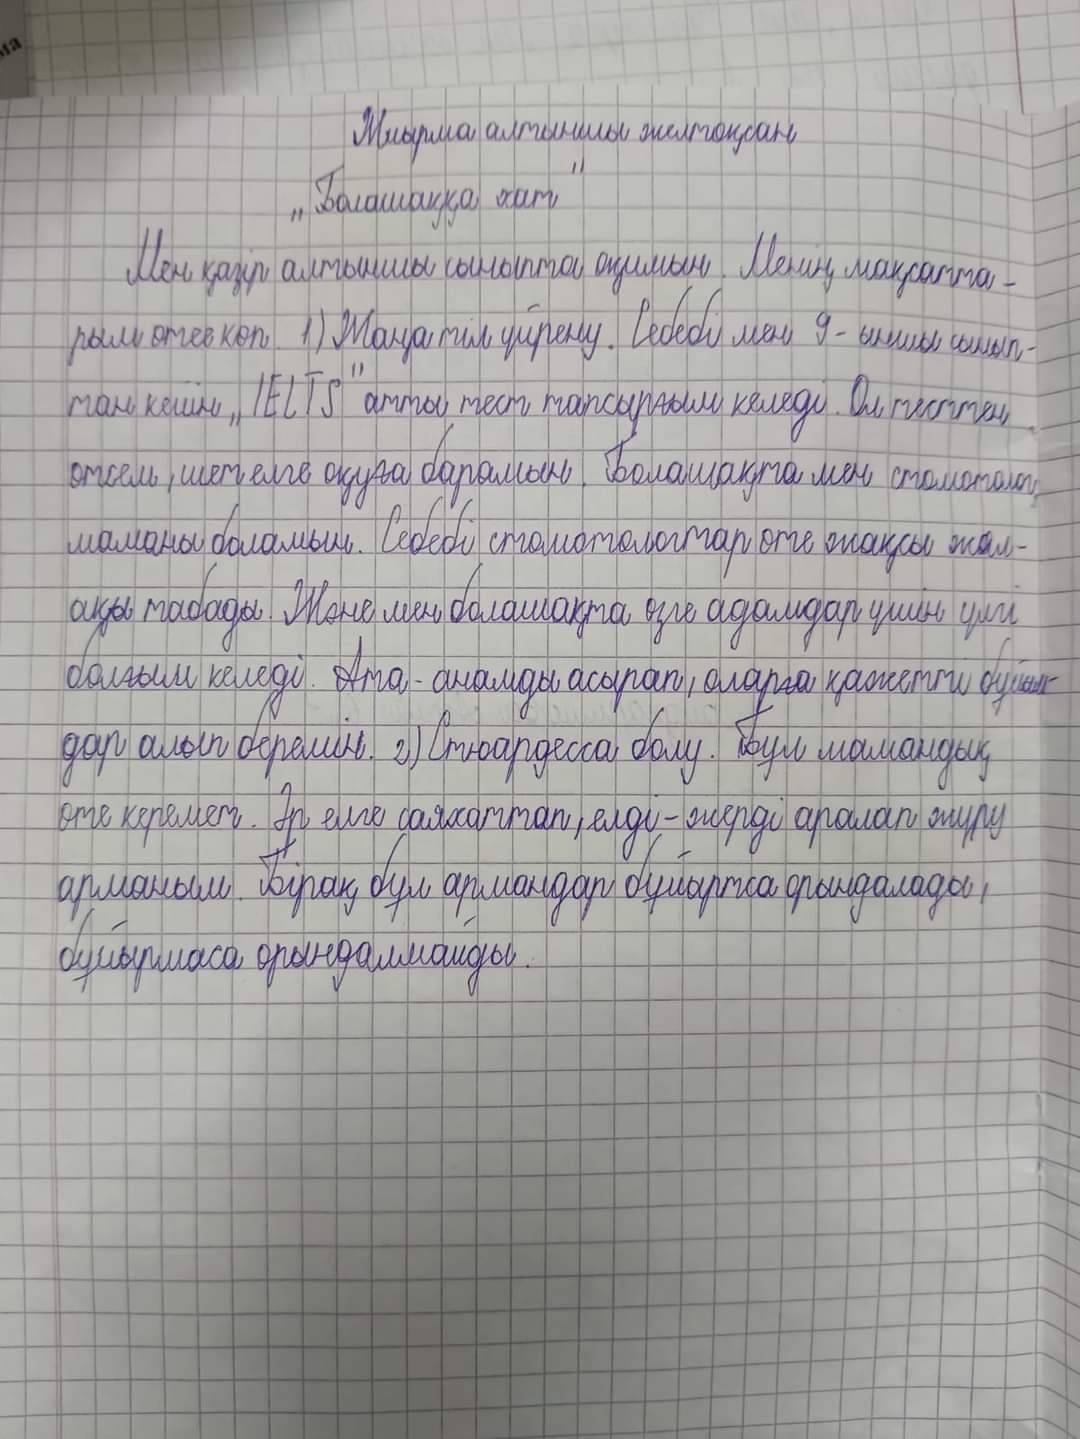 Жиырма алтыншы желтоқсан
„Болашаққа хат"
Мен қазір алтыншы сыныпта оқимын. Менің мақсатта-
рым өте көп. 1) Жаңа тіл үйрену. Себебі мен 9-ыншы сынып-
тан кейін „IELTS" атты тест тапсырғым келеді. Ол тесттен
өтсем, шет елге оқуға барамын. Болашақта мен стоматолог
маманы боламын. Себебі стоматологтар өте жақсы жал-
ақы табады. Және мен болашақта өзге адамдар үшін үлгі
болғым келеді. Ата-анамды асырап, оларға қажетті бұйым
дар алып беремін. 2) Стюардесса болу. Бұл мамандық
өте керемет. Әр елге саяхаттап, елді-жерді аралап жүру
арманым. Бірақ бұл армандар бұйыртса орындалады,
бұйырмаса орындалмайды.